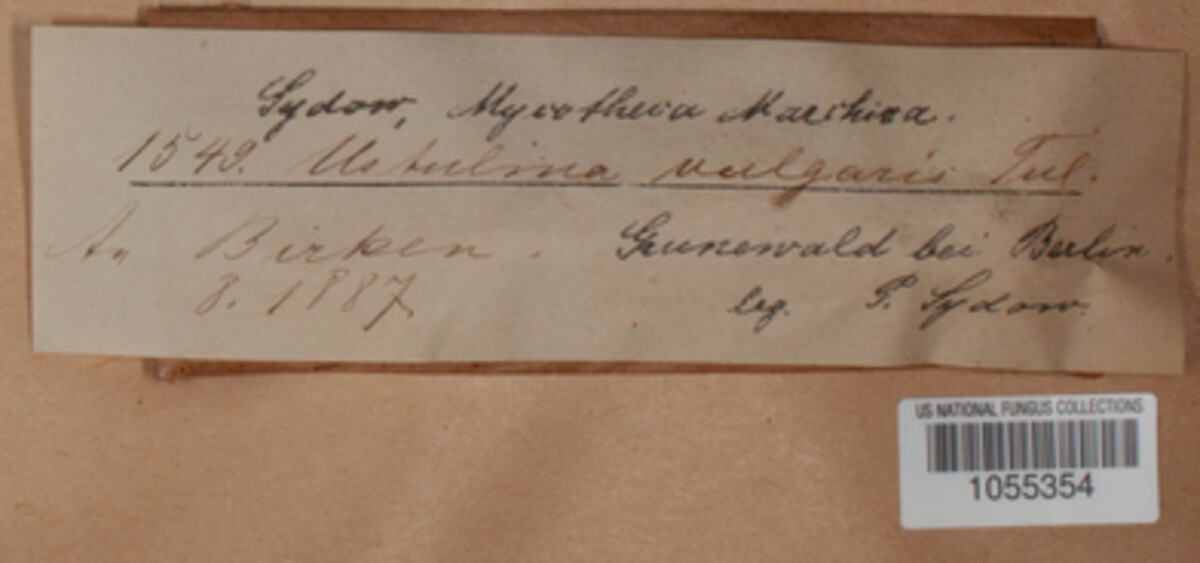 Sydow, Mycotheca Marchica.
1549. Ustulina vulgaris Tul.
An Birken. Grunewald bei Berlin.
8. 1887 leg. P. Sydow.
US NATIONAL FUNGUS COLLECTIONS
1055354